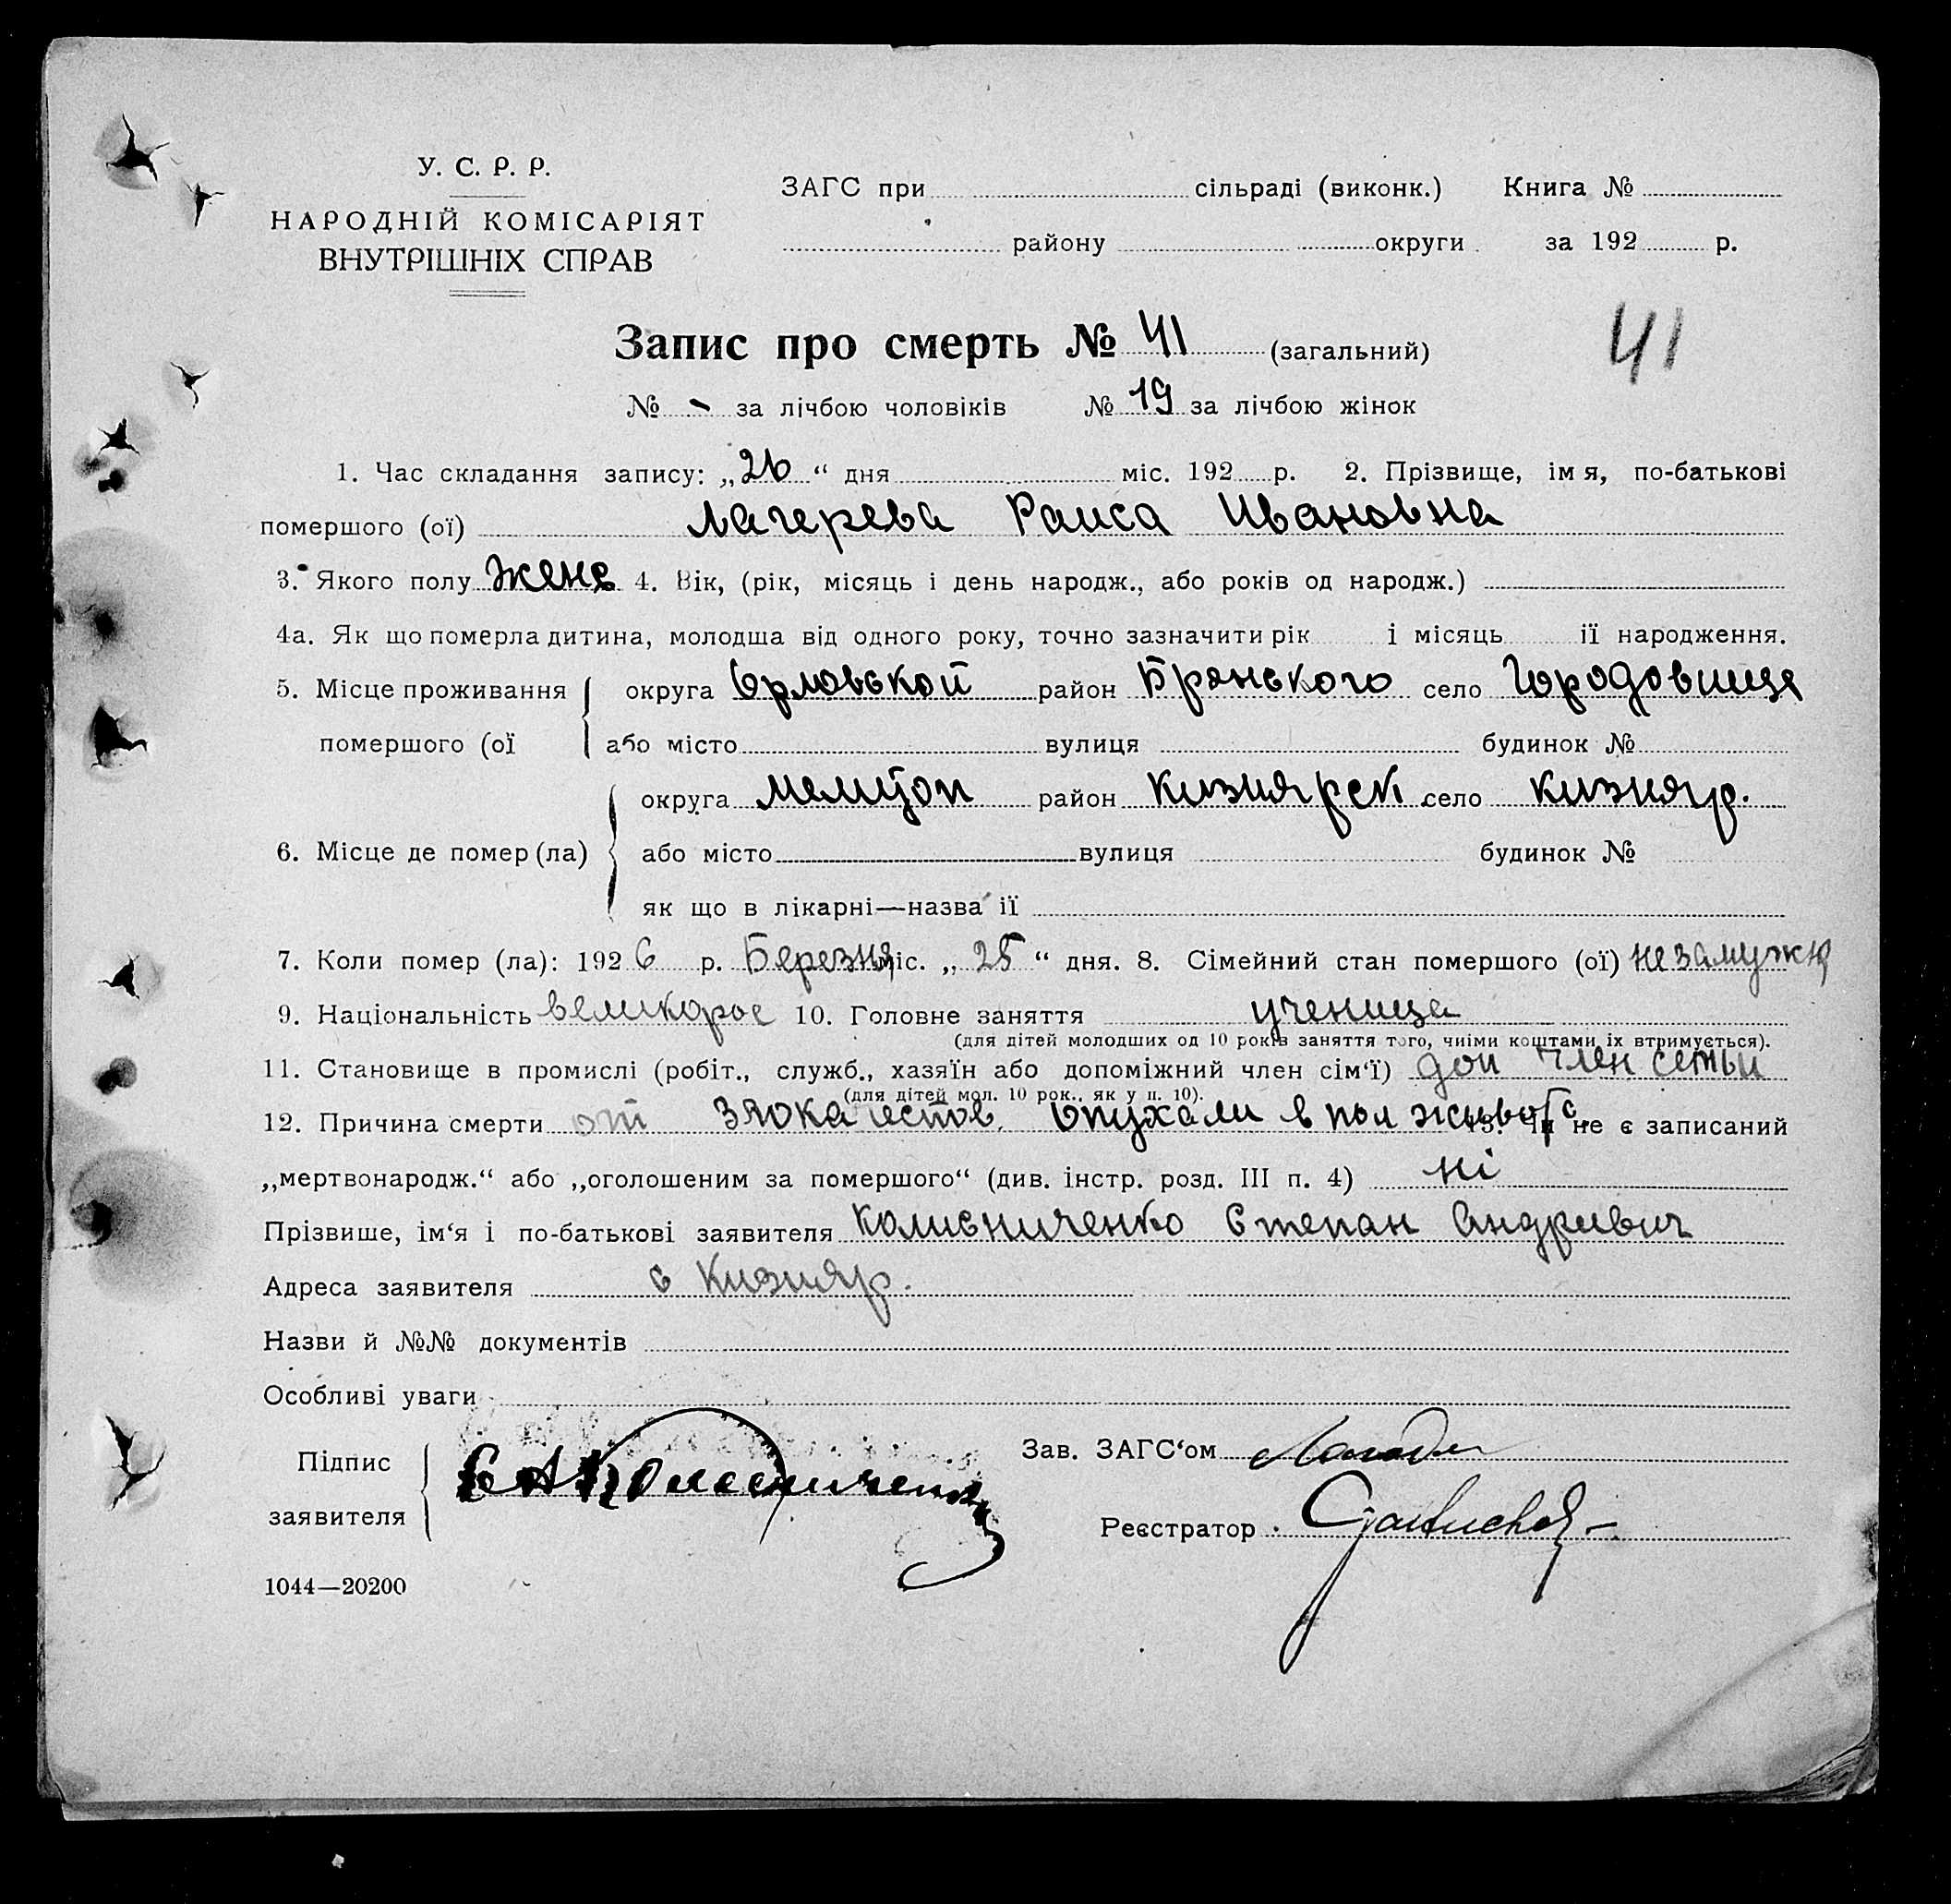 У. С. Р. Р.
НАРОДНІЙ КОМІСАРІЯТ
ВНУТРІШНІХ СПРАВ
ЗАГС при сільраді (виконк.) Книга №
району округи за 192 р.
Запис про смерть № 41 (загальний)
41
№ - за лічбою чоловіків № 19 за лічбою жінок
1. Час складання запису: „26“ дня міс. 192 р. 2. Прізвище, імя, по-батькові
помершого (ої) Лагерева Раиса Ивановна
3. Якого полу жене 4. Вік, (рік, місяць і день народж., або років од народж.)
4а. Як що померла дитина, молодша від одного року, точно зазначити рік і місяць її народження.
5. Місце проживання округа Орловской район Брянского село Городовище
помершого (ої або місто вулиця будинок №
округа Мелитоп район Кизиярск село Кизияр.
6. Місце де помер (ла) або місто вулиця будинок №
як що в лікарні—назва її
7. Коли помер (ла): 1926 р. Березня міс. „25“ дня. 8. Сімейний стан помершого (ої) незамужня
9. Національність великорос 10. Головне заняття ученица
(для дітей молодших од 10 років заняття того, чиїми коштами їх втримується).
11. Становище в промислі (робіт., служб., хазяїн або допоміжний член сім‘ї) доп член семьи
(для дітей мол. 10 рок., як у п. 10).
12. Причина смерти от опухали в пол живота 13. Чи не є записаний
„мертвонародж.“ або „оголошеним за помершого“ (див. інстр. розд. III п. 4) ні
Прізвише, ім‘я і по-батькові заявителя Колисниченко Степан Андриевич
Адреса заявителя с Кизияр.
Назви й №№ документів
Особливі уваги
Підпис
заявителя
С А Колесниченко
Зав. ЗАГС‘ом
Реєстратор
1044—20200